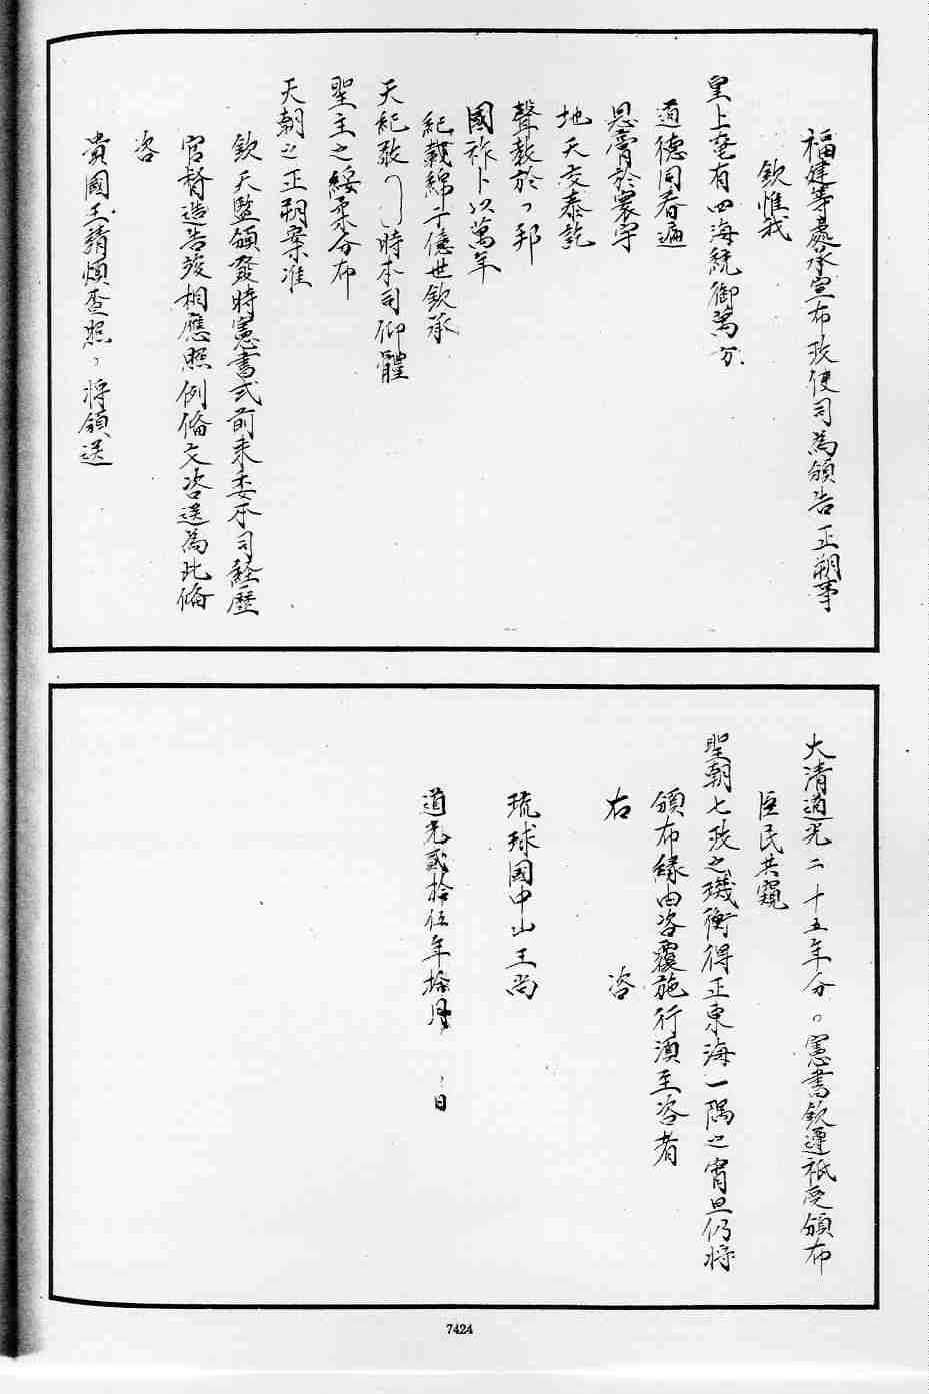 福建等處承宣布政使司為頒告正朔事
欽惟我
皇上奄有四海統御萬方
道德同春遍
恩膏於寰宇
地天交泰訖
聲教於
國祚卜以萬年
紀載綿于億世欽承
天紀敬
時本司仰體
聖主之綏柔分布
天朝之正朔案准
欽天監頒發時憲書式前來委本司經歷
官督造告竣相應照例偹文咨送為此偹
咨
貴國王請煩查照
將頒送
大清道光二十五年分
憲書欽遵祇受頒布
臣民共窺
聖朝七政之璣衡得正東海一隅之宵旦仍將
頒布緣由咨覆施行須至咨者
右咨
琉球國中山王尚
道光貳拾伍年拾月
日
7424